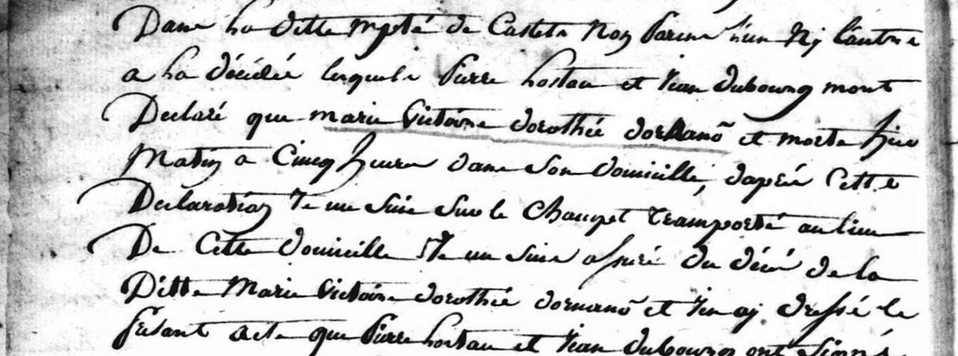 Dans La ditte mpté de Castets Non parens L'un Ny Lautre
a La décédée lesquels Pierre hostau et Jean dubourg mont
Declaré que marie Victoire dorothée dornanõ et morte hier
Matin a Cincq heures dans Son domicille, daprés Cette
Declaration Je me Suis Sur le Champt transporté au lieu
De Cette domicille Je me Suis assuré du décé de la
Ditte Marie Victoire dorothée dornanõ et J'en ay dressé le
présant acte que Pierre hostau et Jean dubourg ont Signé